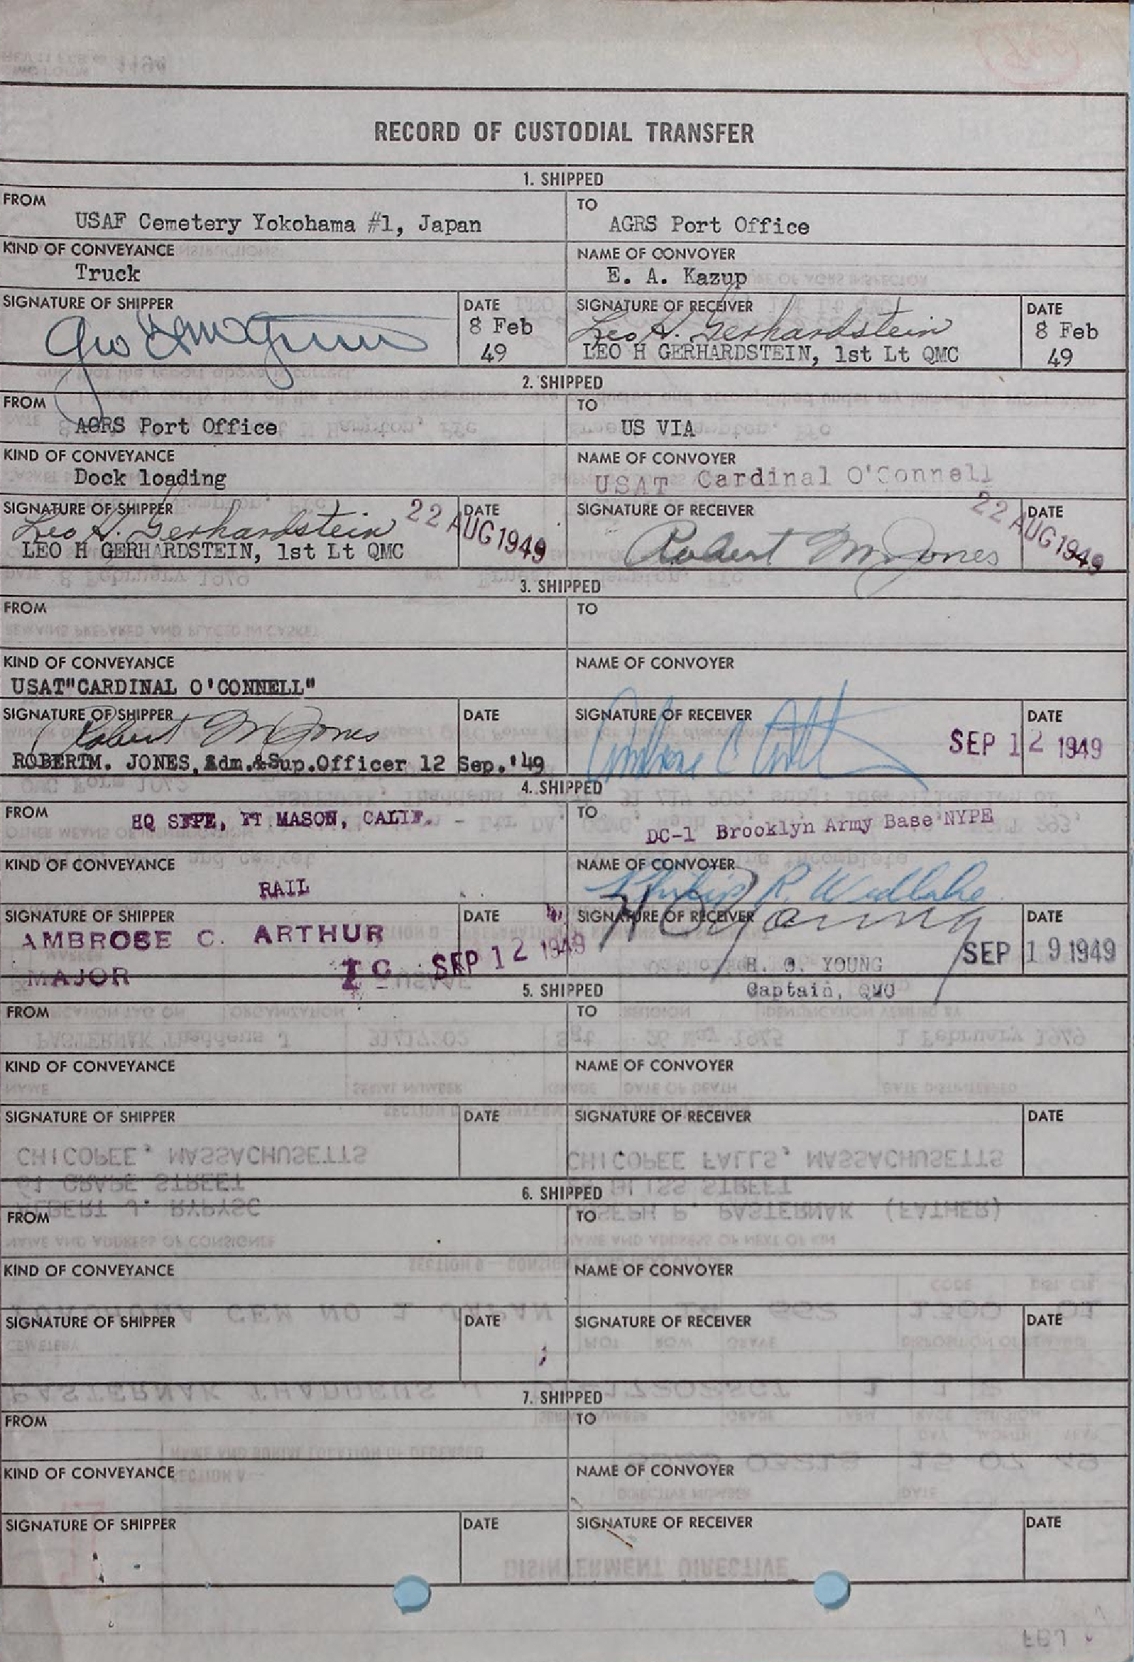 RECORD OF CUSTODIAL TRANSFER
1. SHIPPED
FROM
USAF Cemetery Yokohama #1, Japan
TO
AGRS Port Office
KIND OF CONVEYANCE
Truck
NAME OF CONVOYER
E. A. Kazup
SIGNATURE OF SHIPPER
DATE
8 Feb
49
SIGNATURE OF RECEIVER
Leo H. Gerhardstein
LEO H GERHARDSTEIN, 1st Lt QMC
DATE
8 Feb
49
2. SHIPPED
FROM
AGRS Port Office
TO
US VIA
KIND OF CONVEYANCE
Dock loading
NAME OF CONVOYER
USAT Cardinal O'Connell
SIGNATURE OF SHIPPER
Leo H. Gerhardstein
LEO H GERHARDSTEIN, 1st Lt QMC
DATE
22 AUG 1949
SIGNATURE OF RECEIVER
Robert M Jones
DATE
22 AUG 1949
3. SHIPPED
FROM
TO
KIND OF CONVEYANCE
USAT"CARDINAL O'CONNELL"
NAME OF CONVOYER
SIGNATURE OF SHIPPER
Robert M Jones
ROBERTM. JONES, Adm.&Sup.Officer 12 Sep.'49
DATE
SIGNATURE OF RECEIVER
Ambrose C
DATE
SEP 12 1949
4. SHIPPED
FROM
HQ SFPE, FT MASON, CALIF.
TO
DC-1 Brooklyn Army Base NYPE
KIND OF CONVEYANCE
RAIL
NAME OF CONVOYER
Philip R. Widlake
SIGNATURE OF SHIPPER
AMBROSE C. ARTHUR
MAJOR TC
DATE
SEP 12 1949
SIGNATURE OF RECEIVER
H O Young
H. O. YOUNG
Captain, QMC
DATE
SEP 19 1949
5. SHIPPED
FROM
TO
KIND OF CONVEYANCE
NAME OF CONVOYER
SIGNATURE OF SHIPPER
DATE
SIGNATURE OF RECEIVER
DATE
6. SHIPPED
FROM
TO
KIND OF CONVEYANCE
NAME OF CONVOYER
SIGNATURE OF SHIPPER
DATE
SIGNATURE OF RECEIVER
DATE
7. SHIPPED
FROM
TO
KIND OF CONVEYANCE
NAME OF CONVOYER
SIGNATURE OF SHIPPER
DATE
SIGNATURE OF RECEIVER
DATE